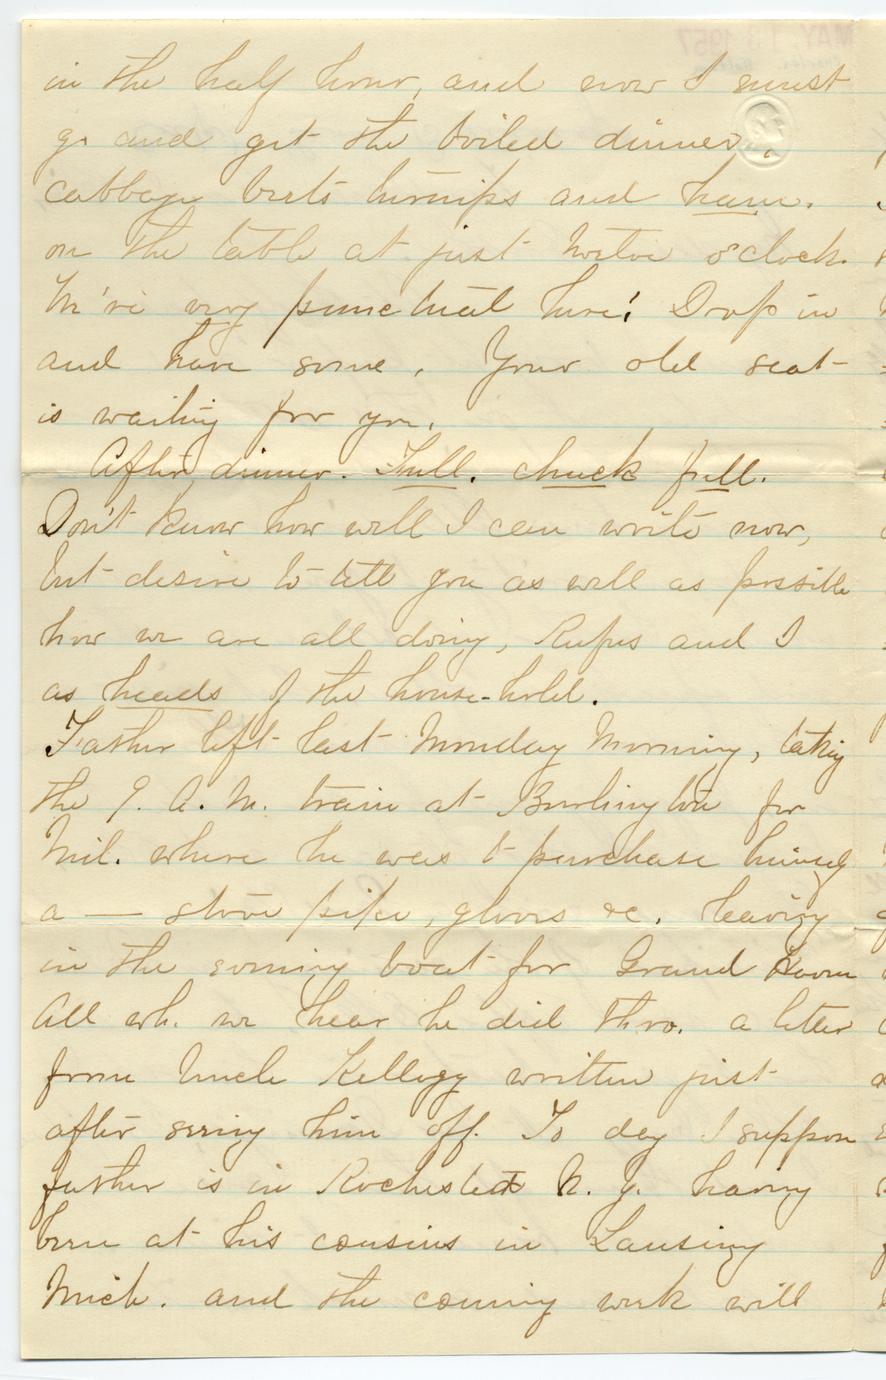 in the half hour, and now I must
go and get the boiled dinner,
cabbage beets turnips and ham.
on the table at just twelve o'clock.
We're very punctual here! Drop in
and have some. Your old seat
is waiting for you.
After dinner. Full. chuck full.
Don't know how well I can write now,
but desire to tell you as well as possible
how we are all doing, Rufus and I
as heads of the house-hold.
Father left last Monday Morning, taking
the 9. A. M. train at Burlington for
Mil. where he was to purchase himself
a — stove pipe, gloves &c. leaving
in the evening boat for Grand Haven
All wh. we hear he did thro. a letter
from Uncle Kellogg written just
after seeing him off. To day I suppose
father is in Rochester N. Y. having
been at his cousins in Lansing
Mich. and the coming week will
MAY 13 1957